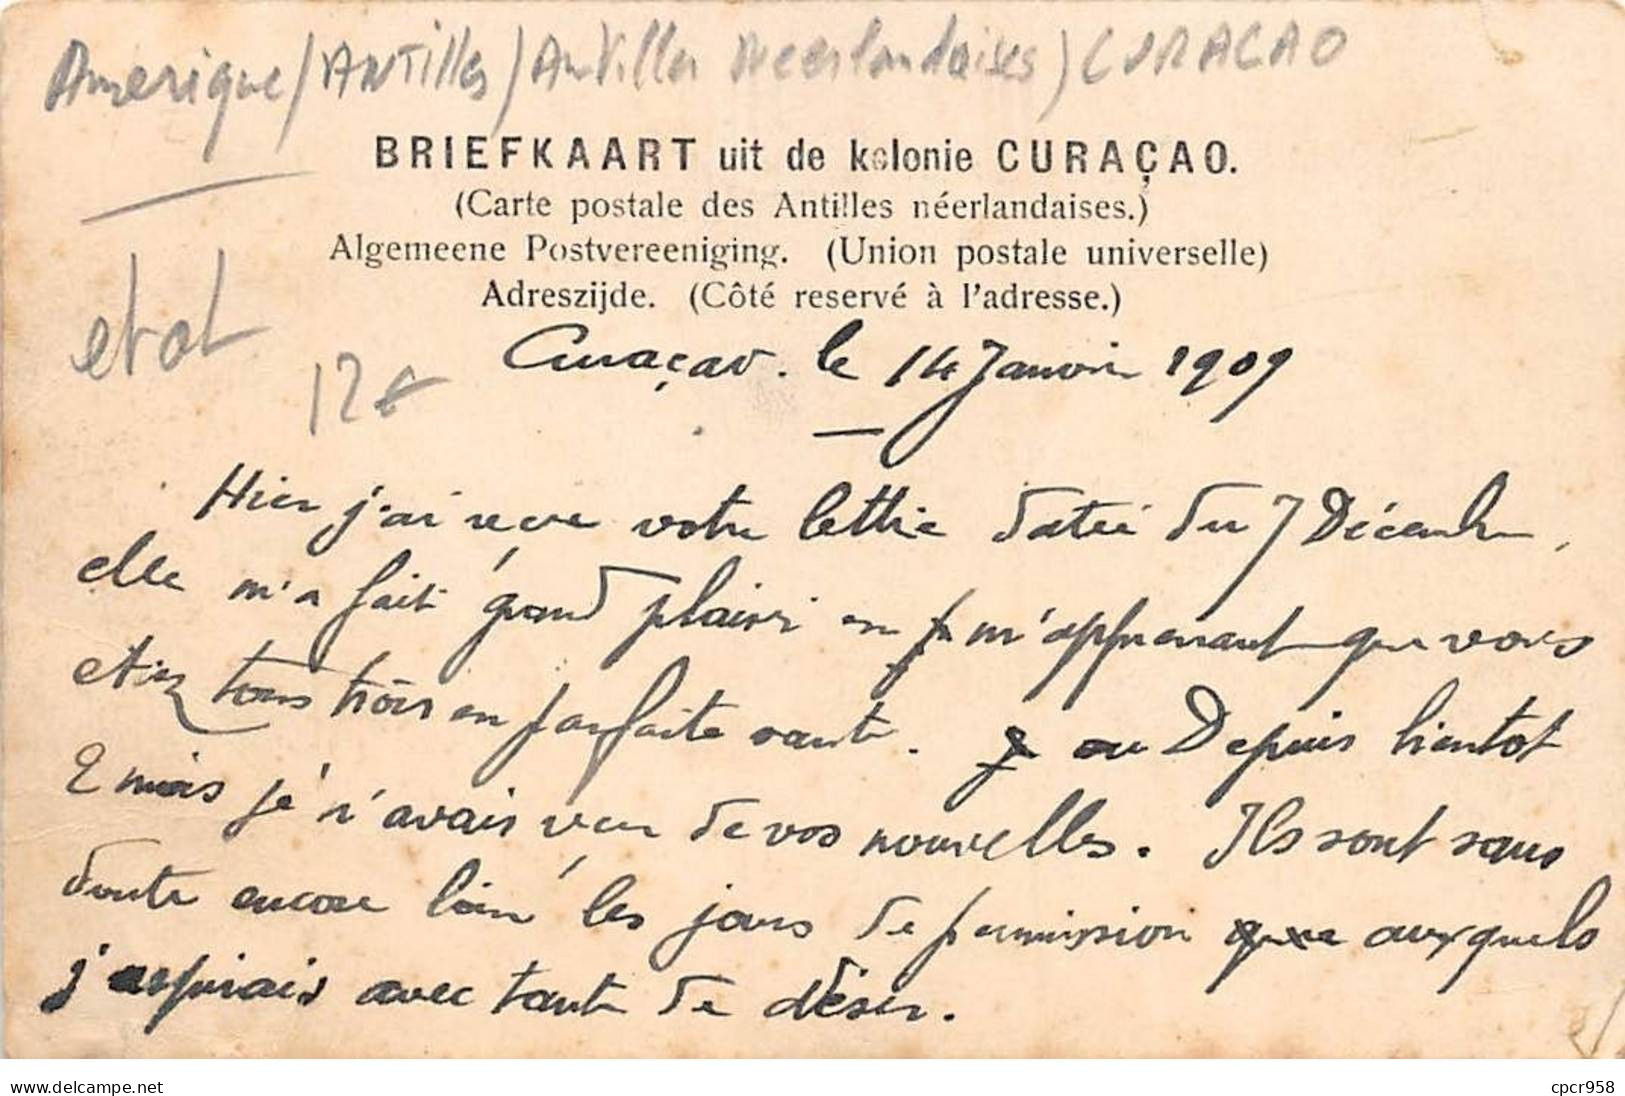 Amerique / ANTilles / Antilles Neerlandaises / CURACAO
BRIEFKAART uit de kolonie CURAÇAO.
(Carte postale des Antilles néerlandaises.)
Algemeene Postvereeniging. (Union postale universelle)
Adreszijde. (Côté reservé à l'adresse.)
etat
12€
Curaçao. le 14 Janvier 1909
Hier j'ai reçu votre lettre datée du 7 Décembre,
elle m'a fait grand plaisir en m'apprenant que vous
étiez tous trois en parfaite santé. Depuis bientot
2 mois je n'avais reçu de vos nouvelles. Ils sont sans
doute encore loin les jours de permission auxquels
j'aspirais avec tant de désir.
www.delcampe.net
cpcr958